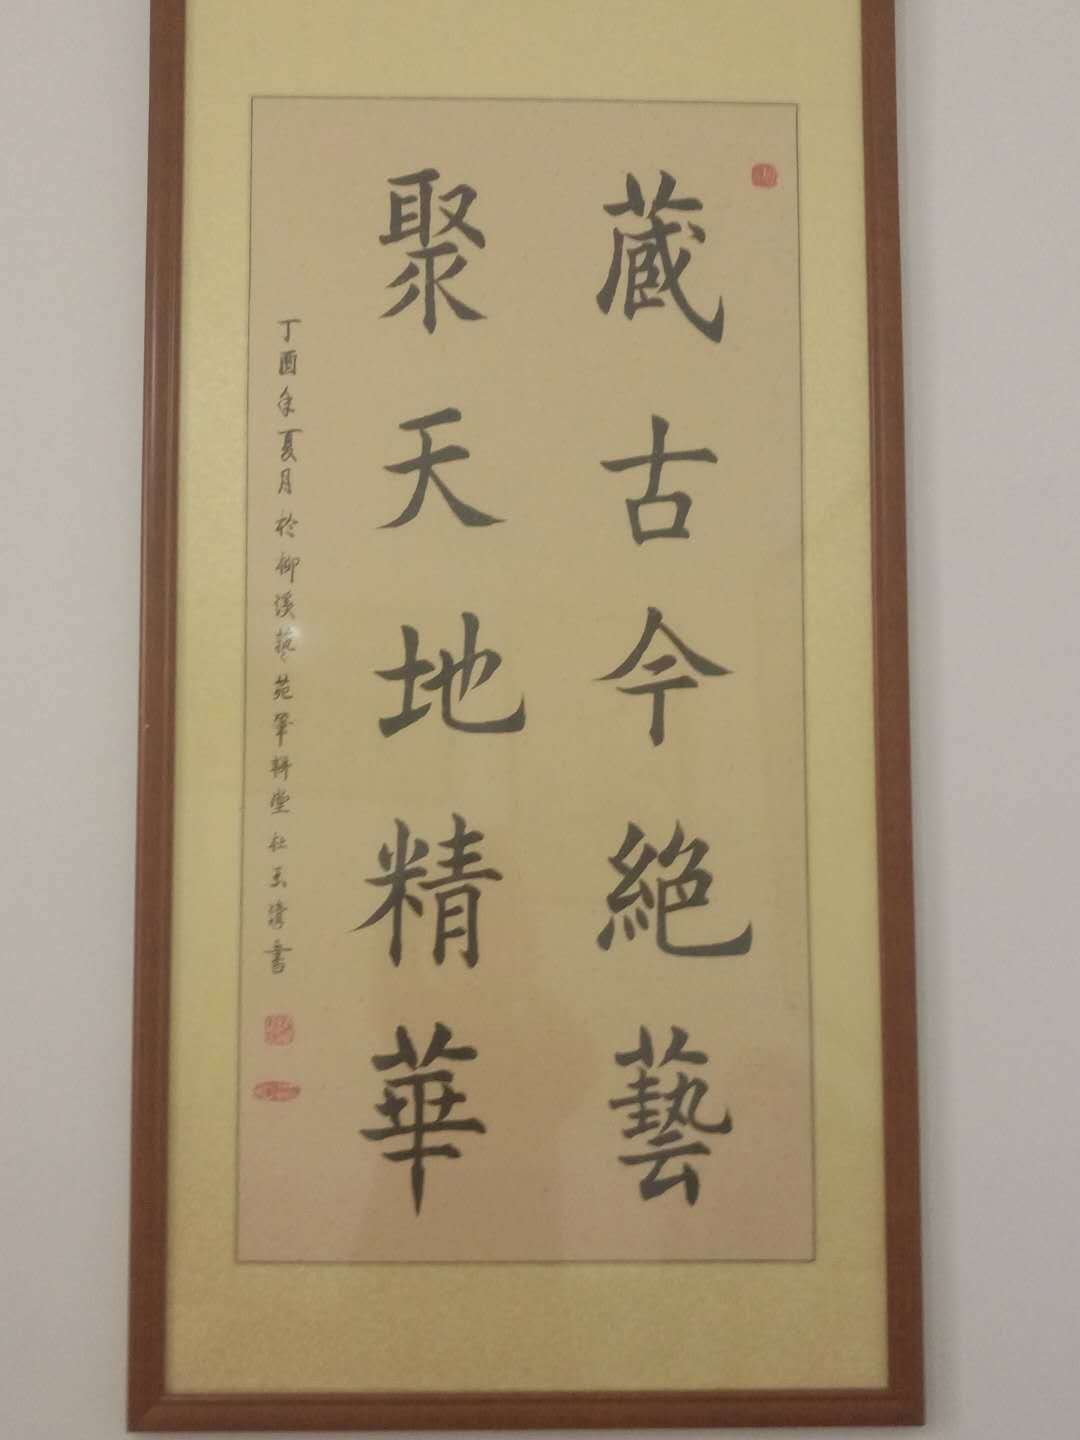 藏古今絶藝
聚天地精華
丁酉年夏月於柳溪藝苑筆耕堂杜玉書